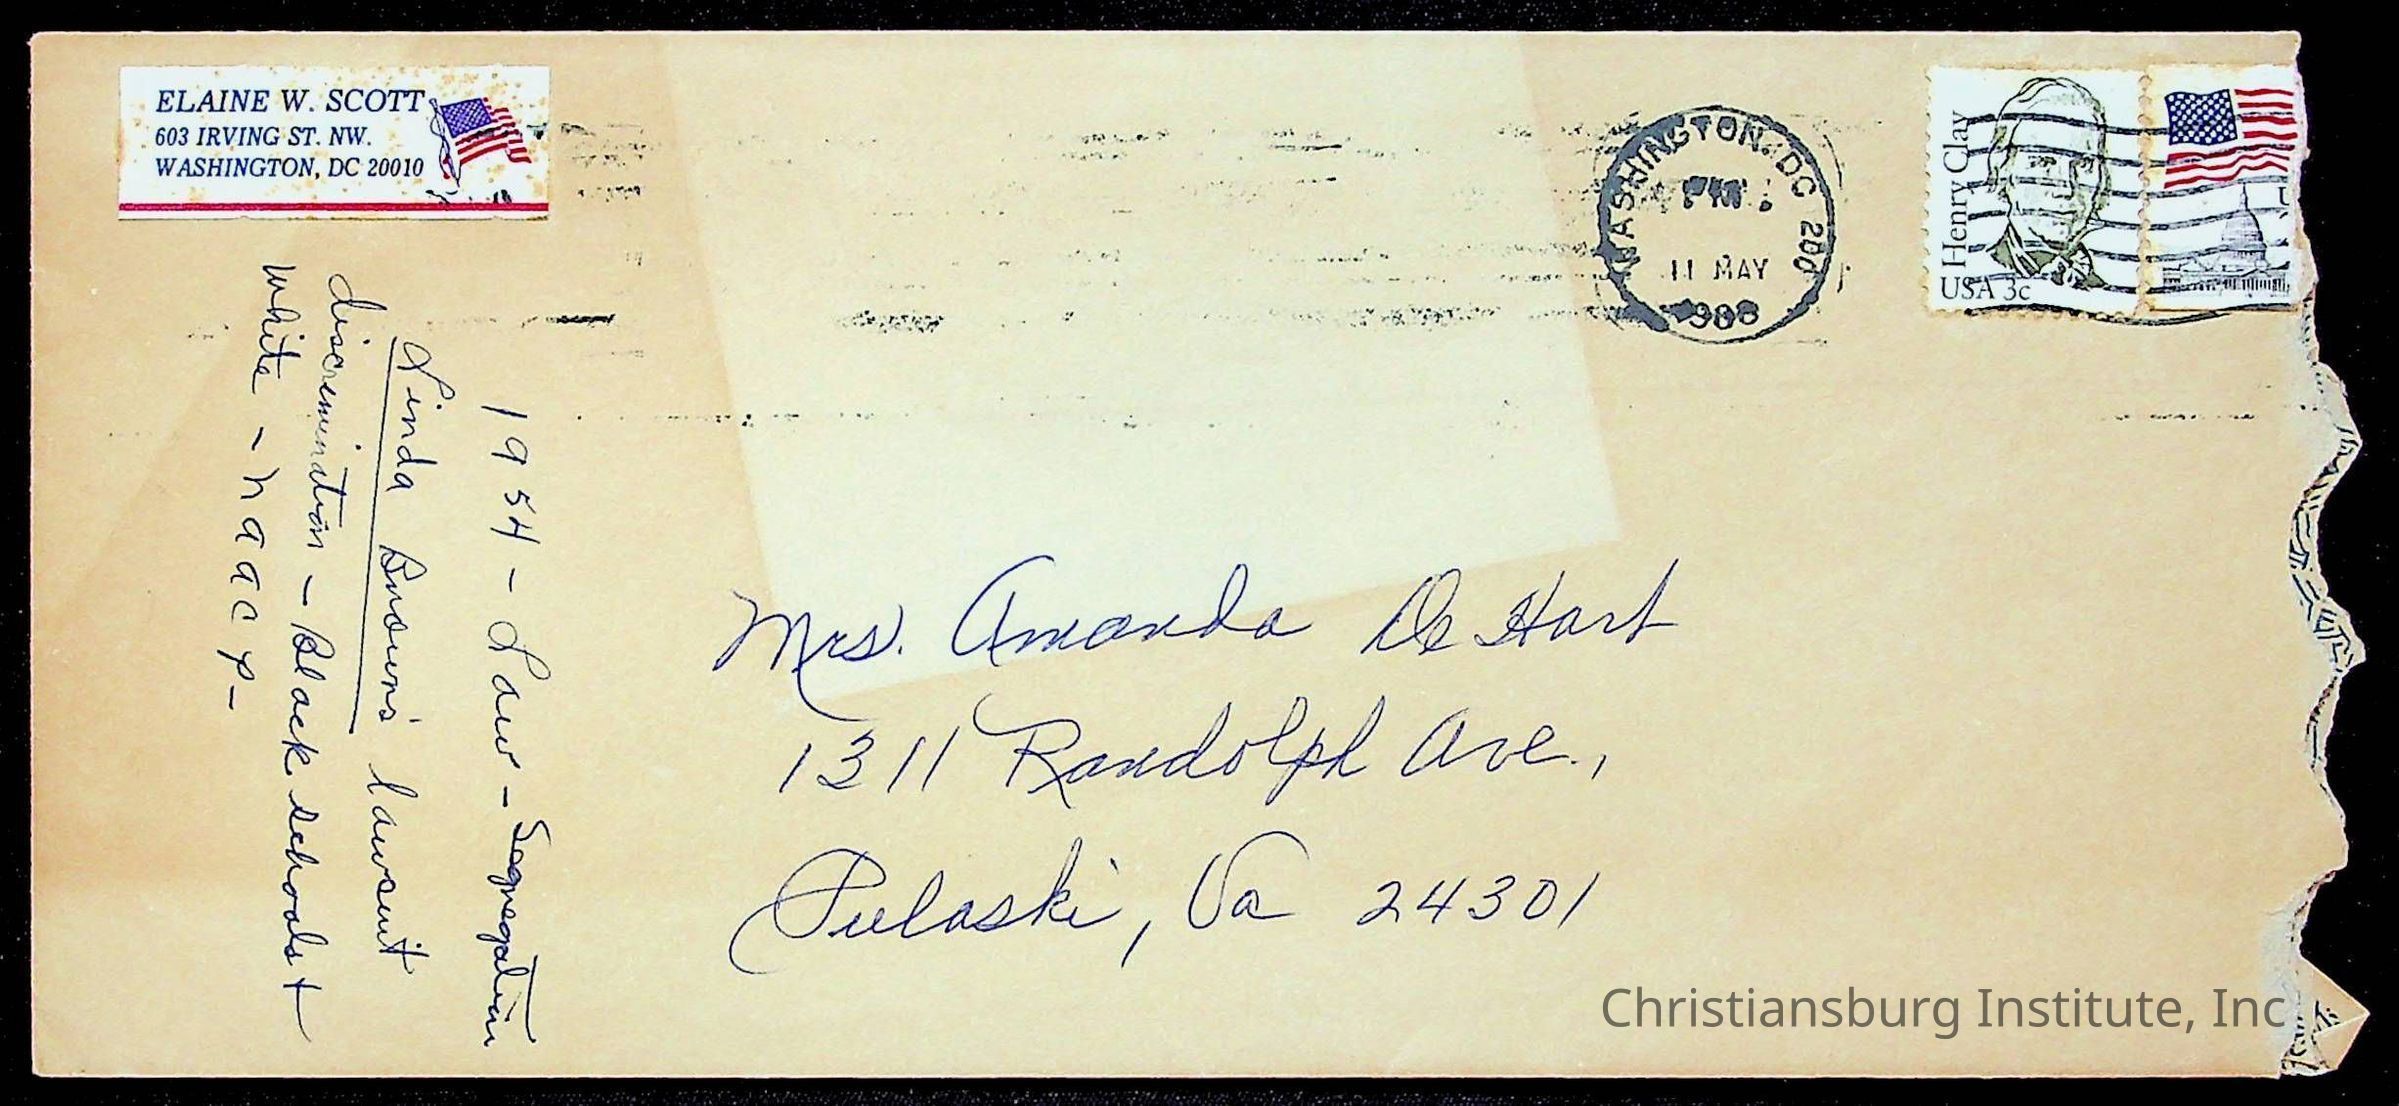 ELAINE W. SCOTT
603 IRVING ST. NW.
WASHINGTON, DC 20010
WASHINGTON, DC 200
PM
11 MAY
1988
Henry Clay
USA 3c
Mrs. Amanda De Hart
1311 Randolph Ave.,
Pulaski, Va 24301
1954 - Law - Segregation
Linda Brown's lawsuit
discremination - Black schools +
white - naacp -
Christiansburg Institute, Inc